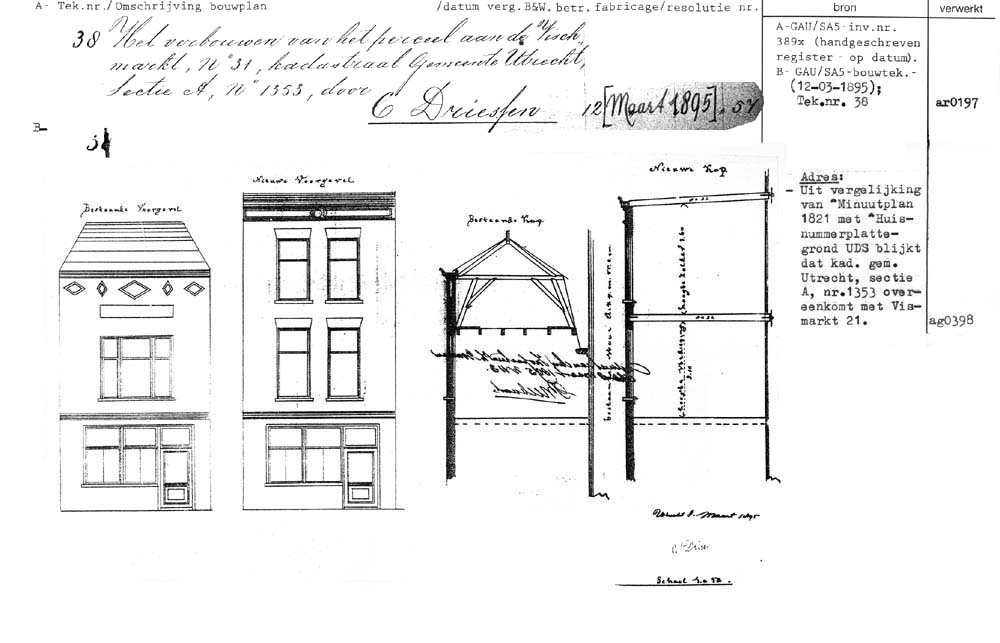 A- Tek.nr./Omschrijving bouwplan
/datum verg.B&W.betr.fabricage/resolutie nr.
bron
verwerkt
38 Het verbouwen van het perceel aan de Visch-
markt, No 31, kadastraal Gemeente Utrecht,
Sectie A, No 1353, door
C Driessen 12 [Maart 1895]. 57
A-GAU/SA5-inv.nr.
389x (handgeschreven
register - op datum).
B- GAU/SA5-bouwtek.-
(12-03-1895);
Tek.nr. 38
ar0197
B-
Adres:
- Uit vergelijking
van "Minuutplan
1821 met "Huis-
nummerplatte-
grond UDS blijkt
dat kad. gem.
Utrecht, sectie
A, nr.1353 over-
eenkomt met Vis-
markt 21.
ag0398
Bestaande Voorgevel
Nieuwe Voorgevel
Bestaande Kap
Nieuwe Kap
Utrecht 8 Maart 1895
C. Dries
Schaal